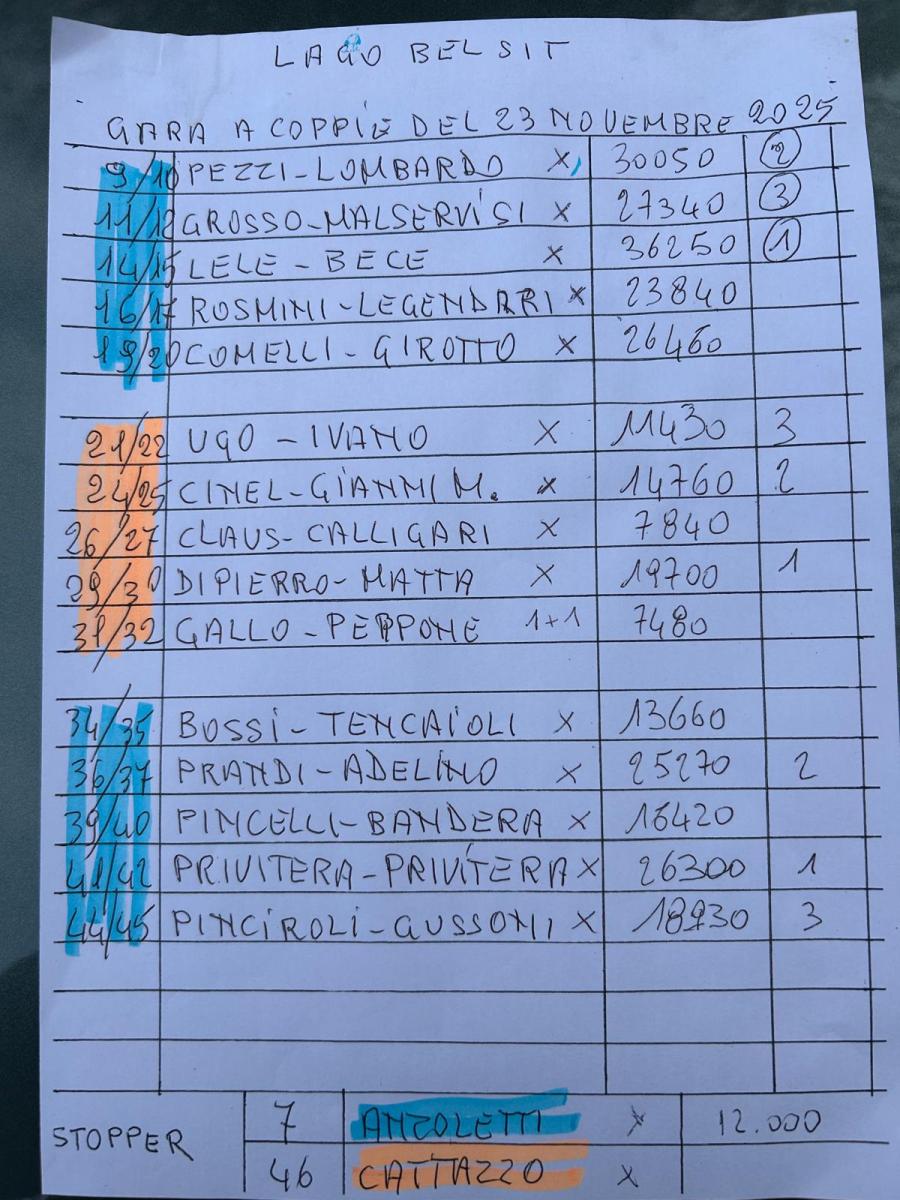 LAGO BEL SIT
GARA A COPPIE DEL 23 NOVEMBRE 2025
9/10 PEZZI-LOMBARDO X 30050 2
11/12 GROSSO-MALSERVISI X 27340 3
14/15 LELE - BECE X 36250 1
16/17 ROSMINI-LEGENDARI X 23840
19/20 COMELLI-GIROTTO X 26460
21/22 UGO - IVANO X 11430 3
24/25 CINEL-GIANNI M. X 14760 2
26/27 CLAUS-CALLIGARI X 7840
29/30 DIPIERRO-MATTA X 19700 1
31/32 GALLO-PEPPONE 1+1 7480
34/35 BOSSI-TENCAIOLI X 13660
36/37 PRANDI-ADELINO X 25270 2
39/40 PINCELLI-BANDERA X 16420
41/42 PRIVITERA-PRIVITERA X 26300 1
44/45 PINCIROLI-GUSSONI X 18930 3
STOPPER
7 ANZOLETTI X 12.000
46 CATTAZZO X